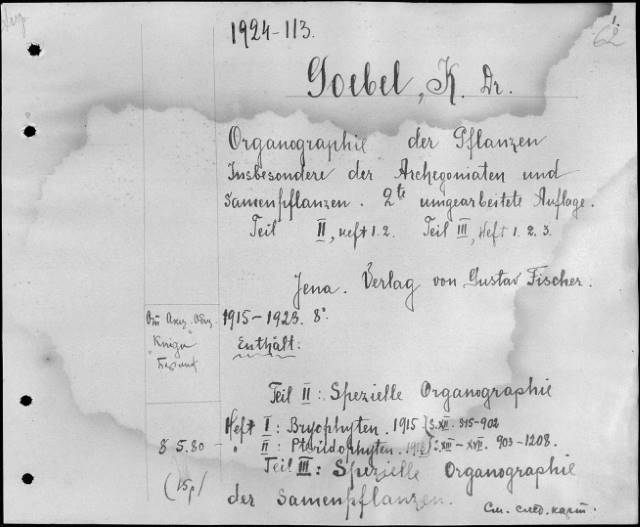 1924-113.
1.
62
Goebel, K. Dr.
Organographie der Pflanzen
Insbesondere der Archegoniaten und
Samenpflanzen. 2te umgearbeitete Auflage.
Teil II, Heft 1.2. Teil III, Heft 1. 2. 3.
Jena. Verlag von Gustav Fischer.
1915-1923. 8°.
"Книга"
Enthält:
Teil II: Spezielle Organographie
Heft I: Bryophyten. 1915 (S. XII. 515-902
8 5.80 - " II: Pteridophyten. 1918): XIII-XVII. 903-1208.
Teil III: Spezielle Organographie
(15р)
der Samenpflanzen.
См. след. карт.